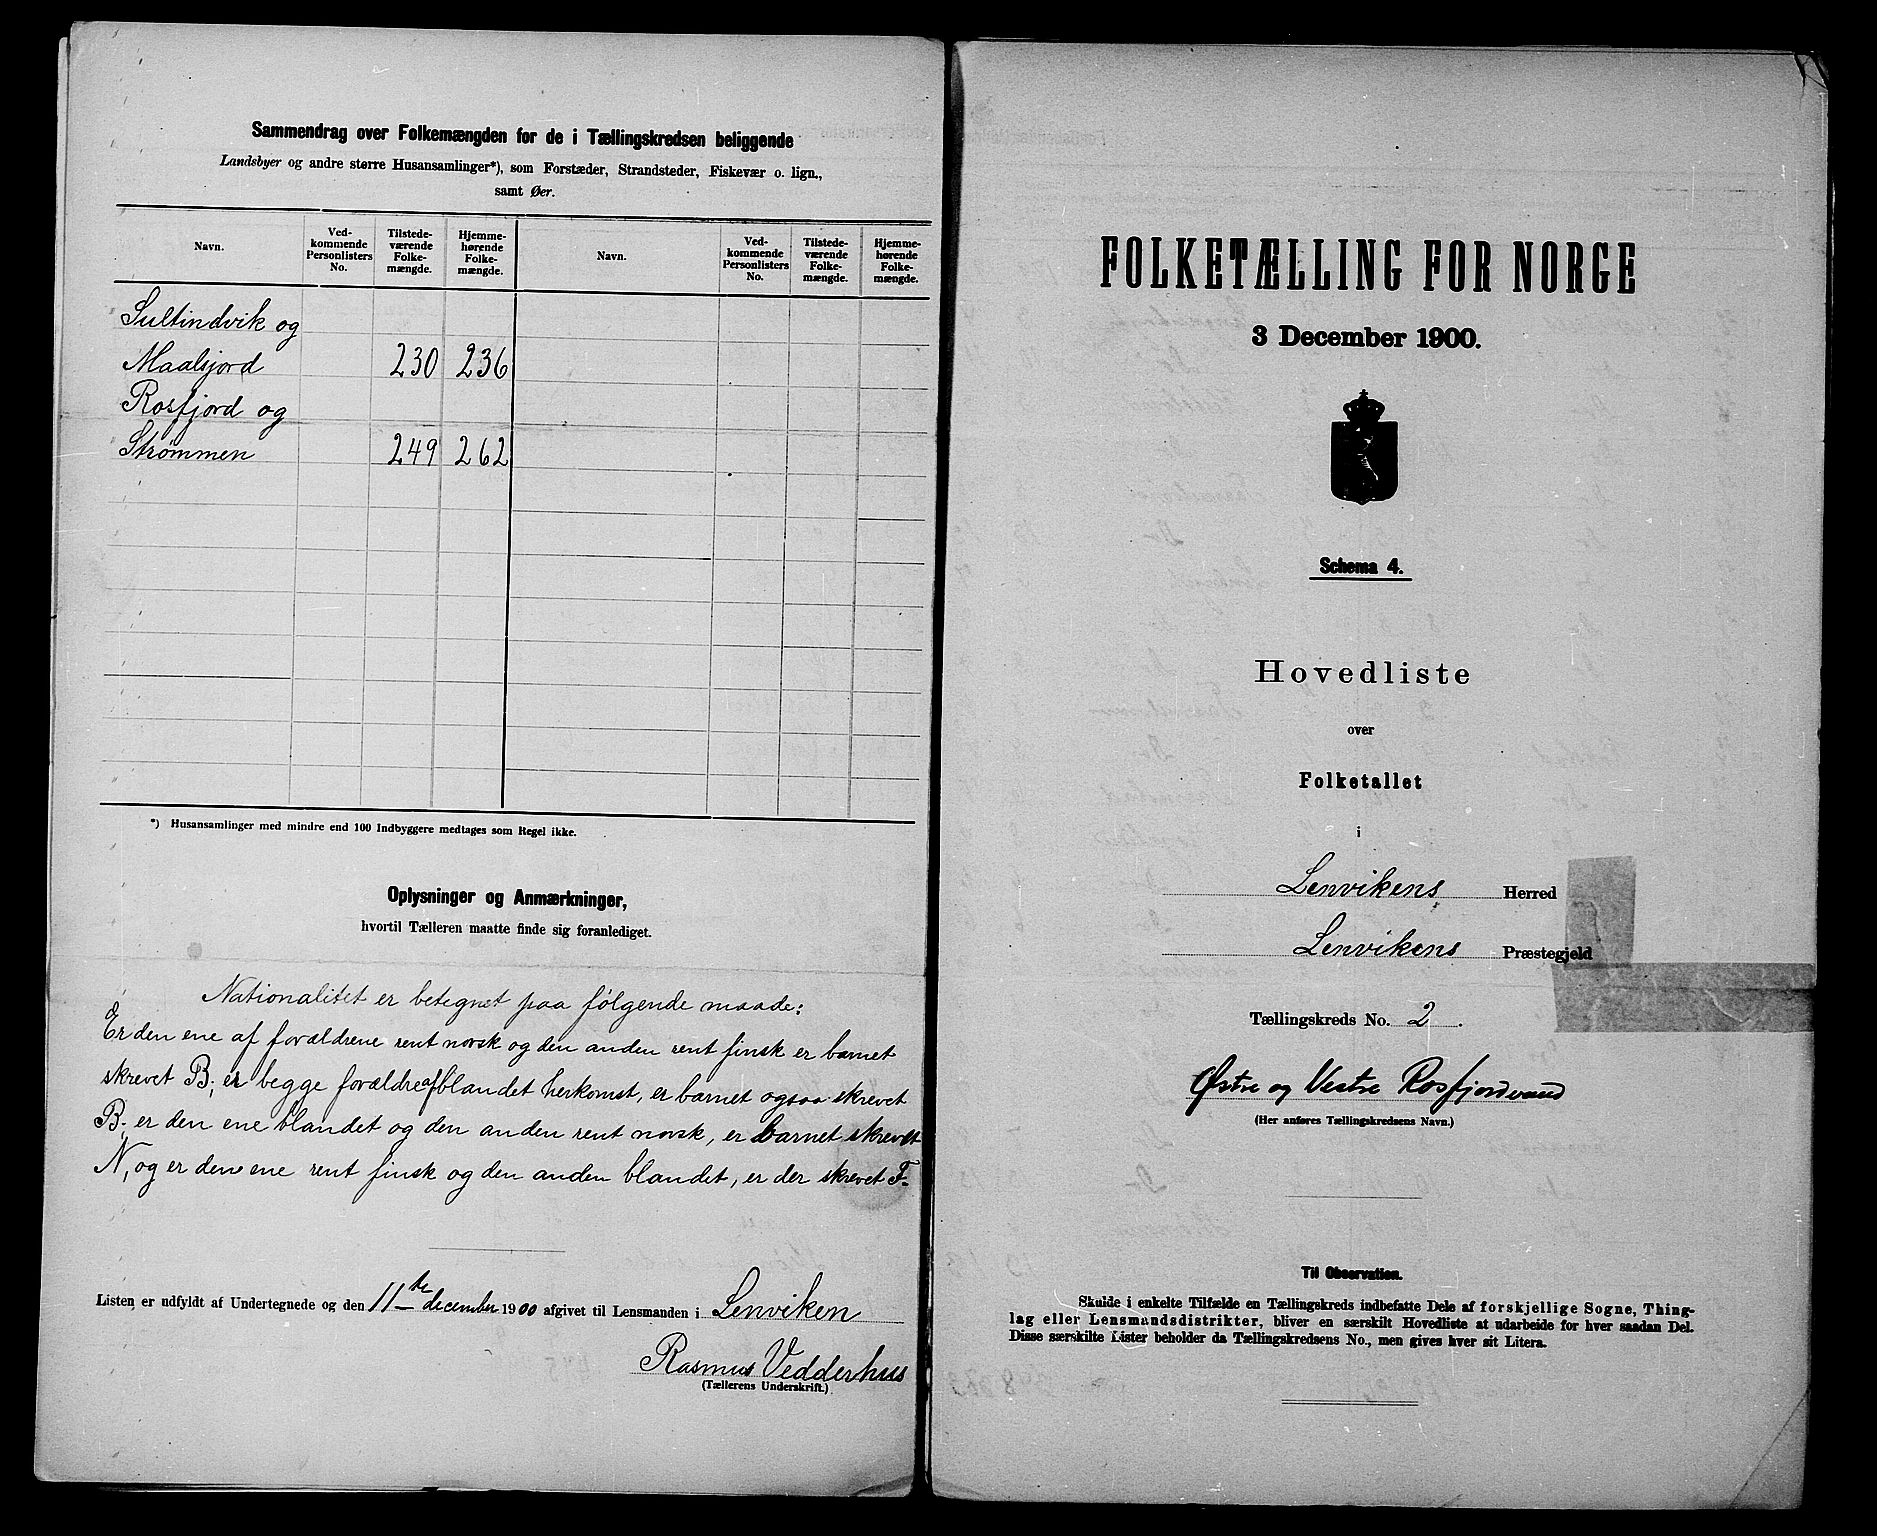 Sammendrag over Folkemængden for de i Tællingskredsen beliggende
Landsbyer og andre større Husansamlinger*), som Forstæder, Strandsteder, Fiskevær o. lign.,
samt Øer.
Navn. Ved-kommende Personlisters No. Tilstede-værende Folke-mængde. Hjemme-hørende Folke-mængde. Navn. Ved-kommende Personlisters No. Tilstede-værende Folke-mængde. Hjemme-hørende Folke-mængde.
Sultindvik og
Maalsjord 230 236
Rosfjord og
Strømmen 249 262
*) Husansamlinger med mindre end 100 Indbyggere medtages som Regel ikke.
Oplysninger og Anmærkninger,
hvortil Tælleren maatte finde sig foranlediget.
Nationalitet er betegnet paa følgende maade:
Er den ene af forældrene rent norsk og den anden rent finsk er barnet
skrevet B; er begge forældre af blandet herkomst, er barnet ogsaa skrevet
B; er den ene blandet og den anden rent norsk, er barnet skrevet
N, og er den ene rent finsk og den anden blandet, er der skrevet F.
Listen er udfyldt af Undertegnede og den 11te december 1900 afgivet til Lensmanden i Lenviken
Rasmus Vedderhus
(Tællerens Underskrift.)
FOLKETÆLLING FOR NORGE
3 December 1900.
Schema 4.
Hovedliste
over
Folketallet
i
Lenvikens Herred
Lenvikens Præstegjeld
Tællingskreds No. 2.
Østre og Vestre Rosfjordvand
(Her anføres Tællingskredsens Navn.)
Til Observation.
Skulde i enkelte Tilfælde en Tællingskreds indbefatte Dele af forskjellige Sogne, Thing-
lag eller Lensmandsdistrikter, bliver en særskilt Hovedliste at udarbeide for hver saadan Del.
Disse særskilte Lister beholder da Tællingskredsens No., men gives hver sit Litera.